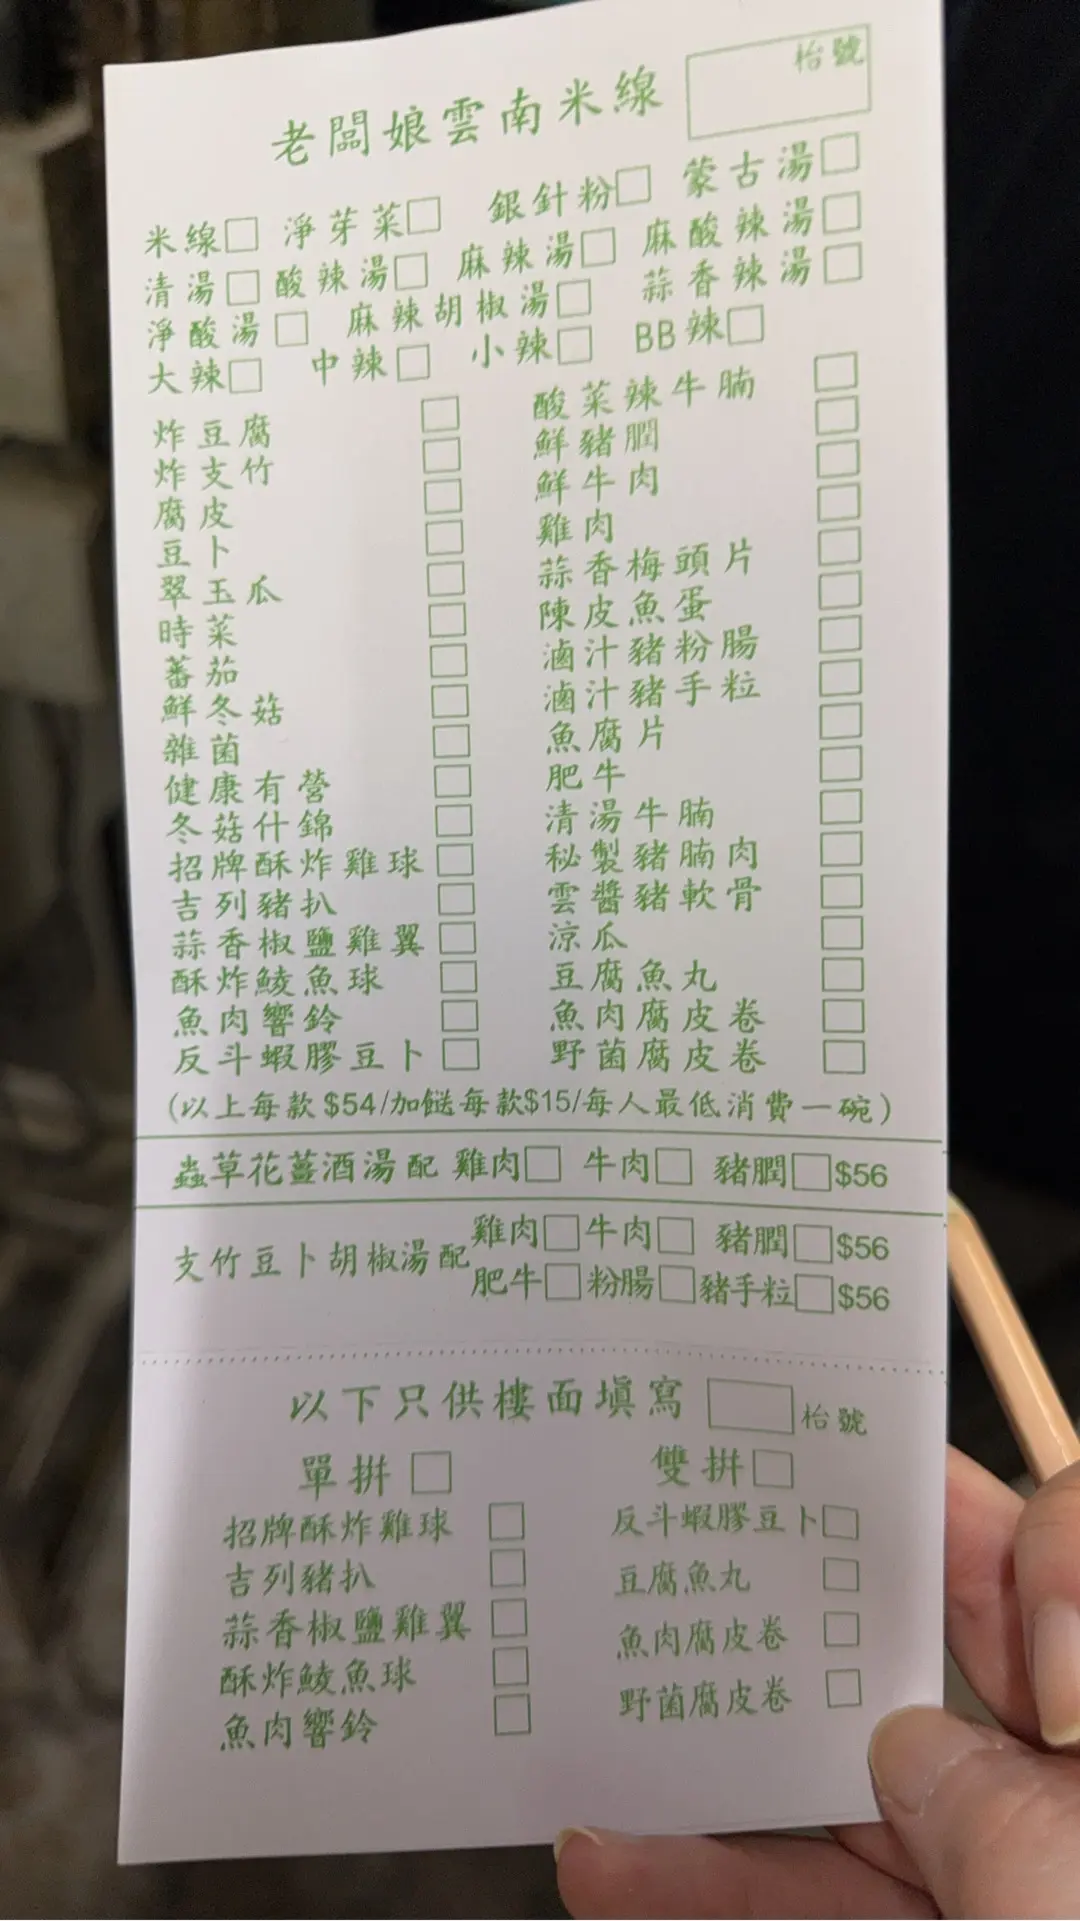 枱號
老闆娘雲南米線
米線□ 淨芽菜□ 銀針粉□ 蒙古湯□
清湯□ 酸辣湯□ 麻辣湯□ 麻酸辣湯□
淨酸湯□ 麻辣胡椒湯□ 蒜香辣湯□
大辣□ 中辣□ 小辣□ BB辣□
炸豆腐□ 酸菜辣牛腩□
炸支竹□ 鮮豬膶□
腐皮□ 鮮牛肉□
豆卜□ 雞肉□
翠玉瓜□ 蒜香梅頭片□
時菜□ 陳皮魚蛋□
蕃茄□ 滷汁豬粉腸□
鮮冬菇□ 滷汁豬手粒□
雜菌□ 魚腐片□
健康有營□ 肥牛□
冬菇什錦□ 清湯牛腩□
招牌酥炸雞球□ 秘製豬腩肉□
吉列豬扒□ 雲醬豬軟骨□
蒜香椒鹽雞翼□ 涼瓜□
酥炸鯪魚球□ 豆腐魚丸□
魚肉響鈴□ 魚肉腐皮卷□
反斗蝦膠豆卜□ 野菌腐皮卷□
(以上每款$54/加餸每款$15/每人最低消費一碗)
蟲草花薑酒湯配 雞肉□ 牛肉□ 豬膶□$56
支竹豆卜胡椒湯配 雞肉□ 牛肉□ 豬膶□$56
肥牛□ 粉腸□ 豬手粒□$56
以下只供樓面填寫 □枱號
單拼□ 雙拼□
招牌酥炸雞球□ 反斗蝦膠豆卜□
吉列豬扒□ 豆腐魚丸□
蒜香椒鹽雞翼□ 魚肉腐皮卷□
酥炸鯪魚球□ 野菌腐皮卷□
魚肉響鈴□